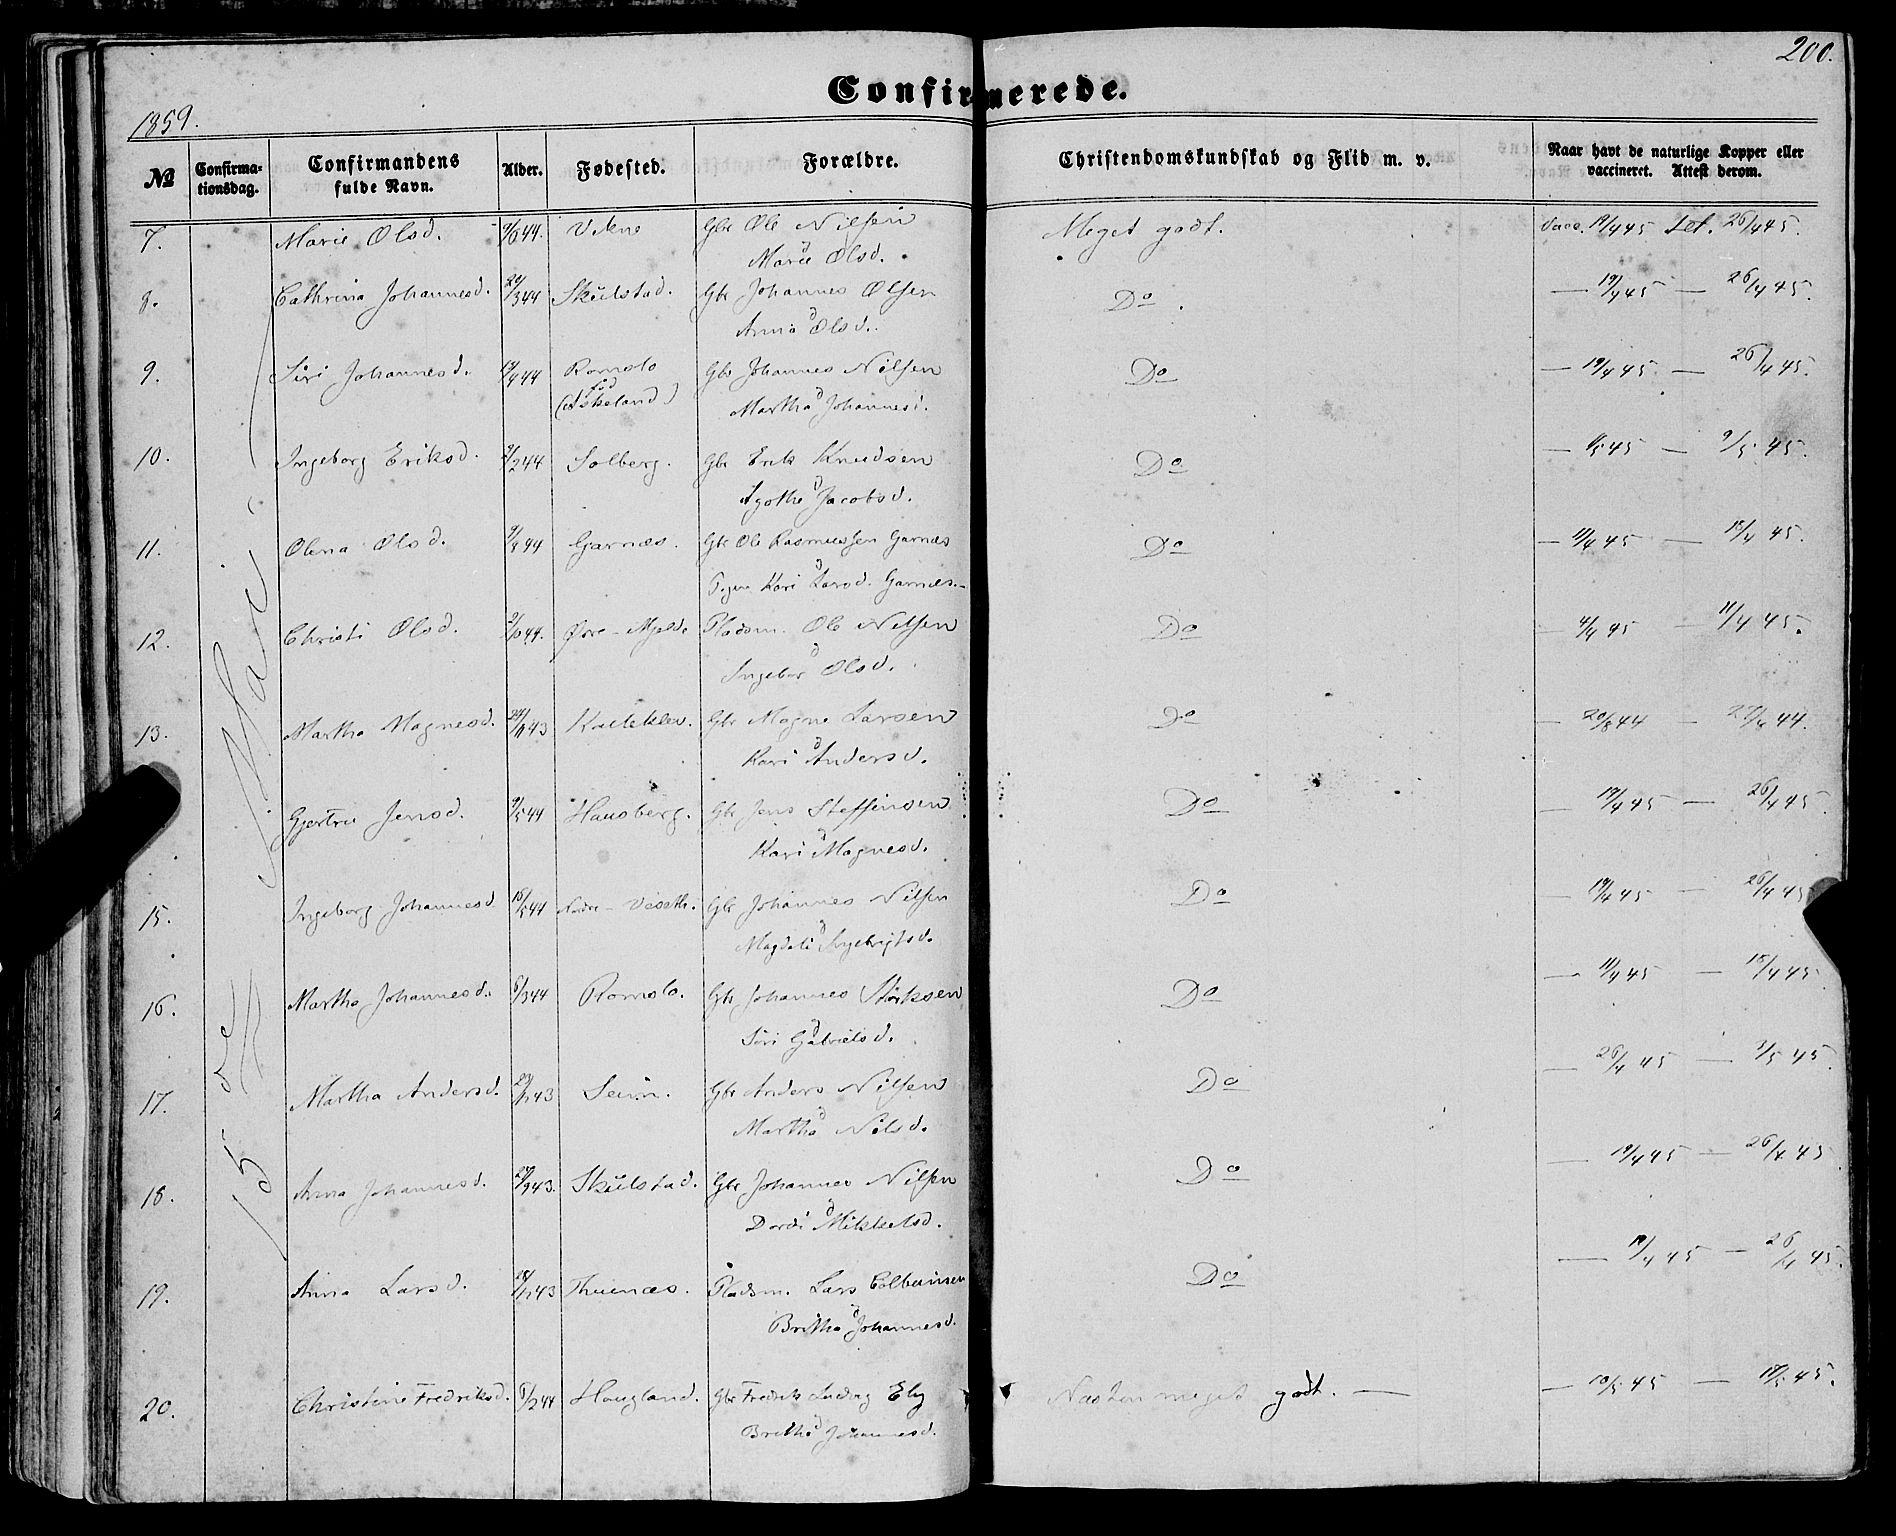 200.
Confirmerede.
1859.
№ Confirma-tionsdag. Confirmandens fulde Navn. Alder. Fødested. Forældre. Christendomskundskab og Flid m. v. Naar havt de naturlige Kopper eller vaccineret. Attest derom.
7. Marie Olsd. Vikne Gbr Ole Nilsen Meget godt. Vacc. 19/4 45 26/4 45.
Marie Olsd.
8. Cathrina Johannesd. 20/3 44 Skulstad. Gbr Johannes Olsen Do. — 19/4 45 — 26/4 45.
Anna Olsd.
9. Siri Johannesd. 19/4 44 Romslo Gbr Johannes Nilsen Do — 19/4 45 — 26/4 45.
(Askeland) Martha Johannesd.
10. Ingeborg Eriksd. 9/2 44 Solberg. Gbr Erik Knudsen Do — 45 — 9/5 45.
Agothe Jacobsd.
11. Olena Olsd. Garnæs. Gbr Ole Rasmussen Garnæs Do — 11/4 45 — 18/4 45.
Pigen Kari Larsd. Garnæs.
12. Christi Olsd. Øvre-Mjelde Pladsm. Ole Nilsen Do — 4/4 45 — 11/4 45.
Ingebor Olsd.
13. Martha Magnesd. Gbr Magne Larsen Do — 20/8 44 — 44.
Kari Andersd.
Gjertru Jensd. 9/5 44 Hausberg. Gbr Jens Steffensen Do — 19/4 45 — 26/4 45.
Kari Magnesd.
15. Ingeborg Johannesd. Nedre-Viseth. Gbr Johannes Nilsen Do — 19/4 45 — 26/4 45
Magdeli Ingebrigtsd.
16. Martha Johannesd. 6/3 44 Romslo. Gbr Johannes Størksen Do — 11/4 45 — 18/4 45
Siri Gabrielsd.
17. Martha Andersd. Seim. Gbr Anders Nilsen Do — 26/4 45 — 3/5 45.
Martha Nilsd.
18. Anna Johannesd. Skulstad. Gbr Johannes Nilsen Do — 19/4 45 — 26/4 45
Dordi Mikkelsd.
19. Anna Larsd. Thuenæs. Pladsm. Lars Colbeinsen Do — 19/4 45 — 26/4 45.
Britha Johannesd.
20. Christine Fredriksd. 6/2 44 Haugland. Gbr Fredrik Ludvig Ely Næsten meget godt. — — 10/5 45 — 45.
Britha Johannesd.